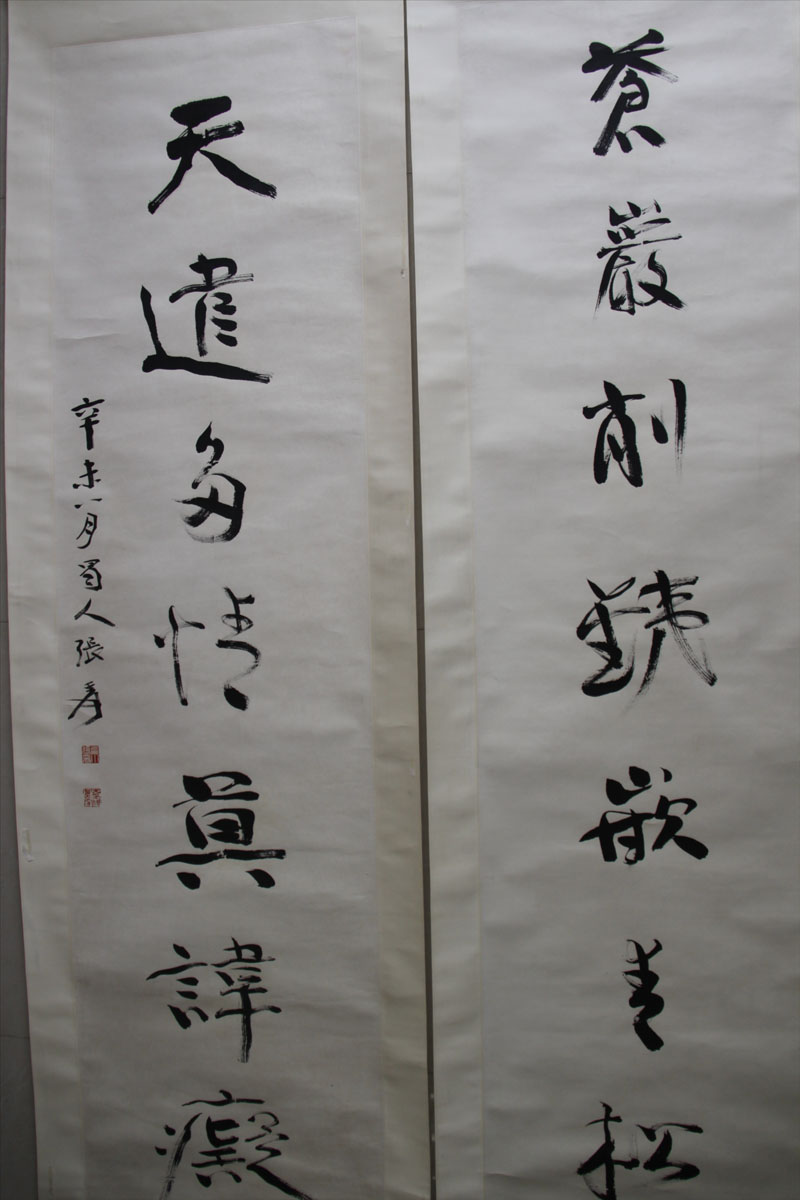 蒼巖削鐵嵌青松
天遣多情莫諱癡
辛未八月蜀人張爰